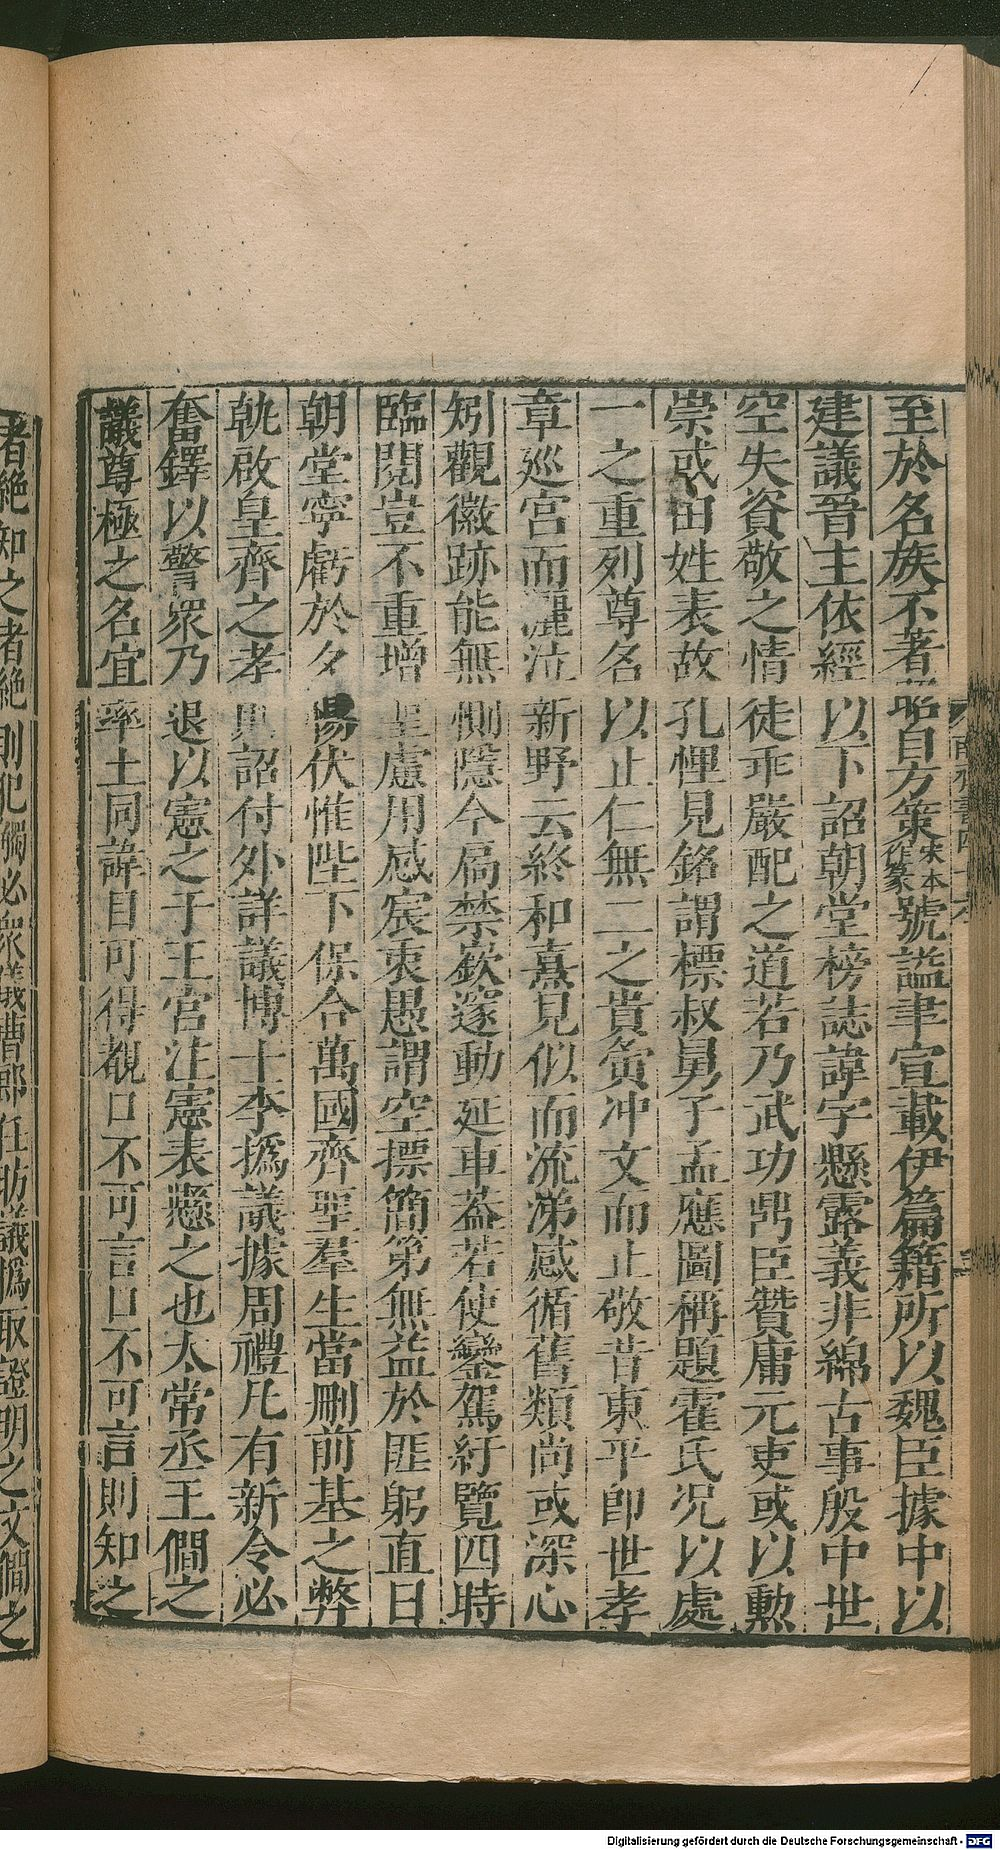 至於名族不著昭自方策宋本作篆號諡聿宣載伊篇籍所以魏臣據中以
建議晉主依經以下詔朝堂榜誌諱字懸露義非綿古事殷中世
空失資敬之情徒乖嚴配之道若乃式功鼎臣贊庸元吏或以勲
崇或由姓表故孔悝見銘謂標叔舅子孟應圖稱題霍氏况以處
一之重列尊名以止仁無二之貴夤冲文而止敬昔東平即世孝
章巡宮而灑泣新野云終和熹見似而流涕感循舊類尚或深心
矧觀徽跡能無惻隱今扃禁嶔邃動延車蓋若使鑾駕紆覽四時
臨閱豈不重增聖慮用感宸衷愚謂空摽簡第無益於匪躬直曰
朝堂寧虧於夕惕伏惟陛下保合萬國齊聖羣生當刪前基之弊
軌啟皇齊之孝則詔付外詳議博士李撝議據周禮凡有新令必
奮鐸以警衆乃退以憲之于王宮注憲表懸之也太常丞王僩之
議尊極之名宜率土同諱目可得覩口不可言口不可言則知之
者絶知之者絶則犯觸必衆儀曹郎任昉議撝取證明之文僩之
Digitalisierung gefördert durch die Deutsche Forschungsgemeinschaft - DFG